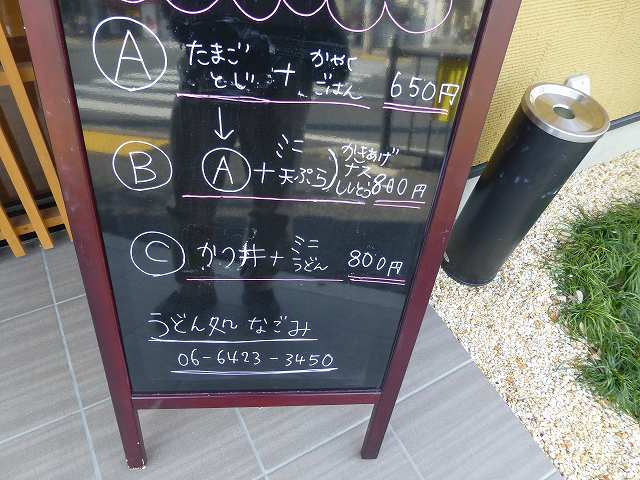 Ⓐ たまごとじ + かやくごはん 650円
↓
Ⓑ Ⓐ + ミニ天ぷら) かきあげ ナス ししとう 800円
Ⓒ かつ丼 + ミニうどん 800円
うどん処 なごみ
06-6423-3450